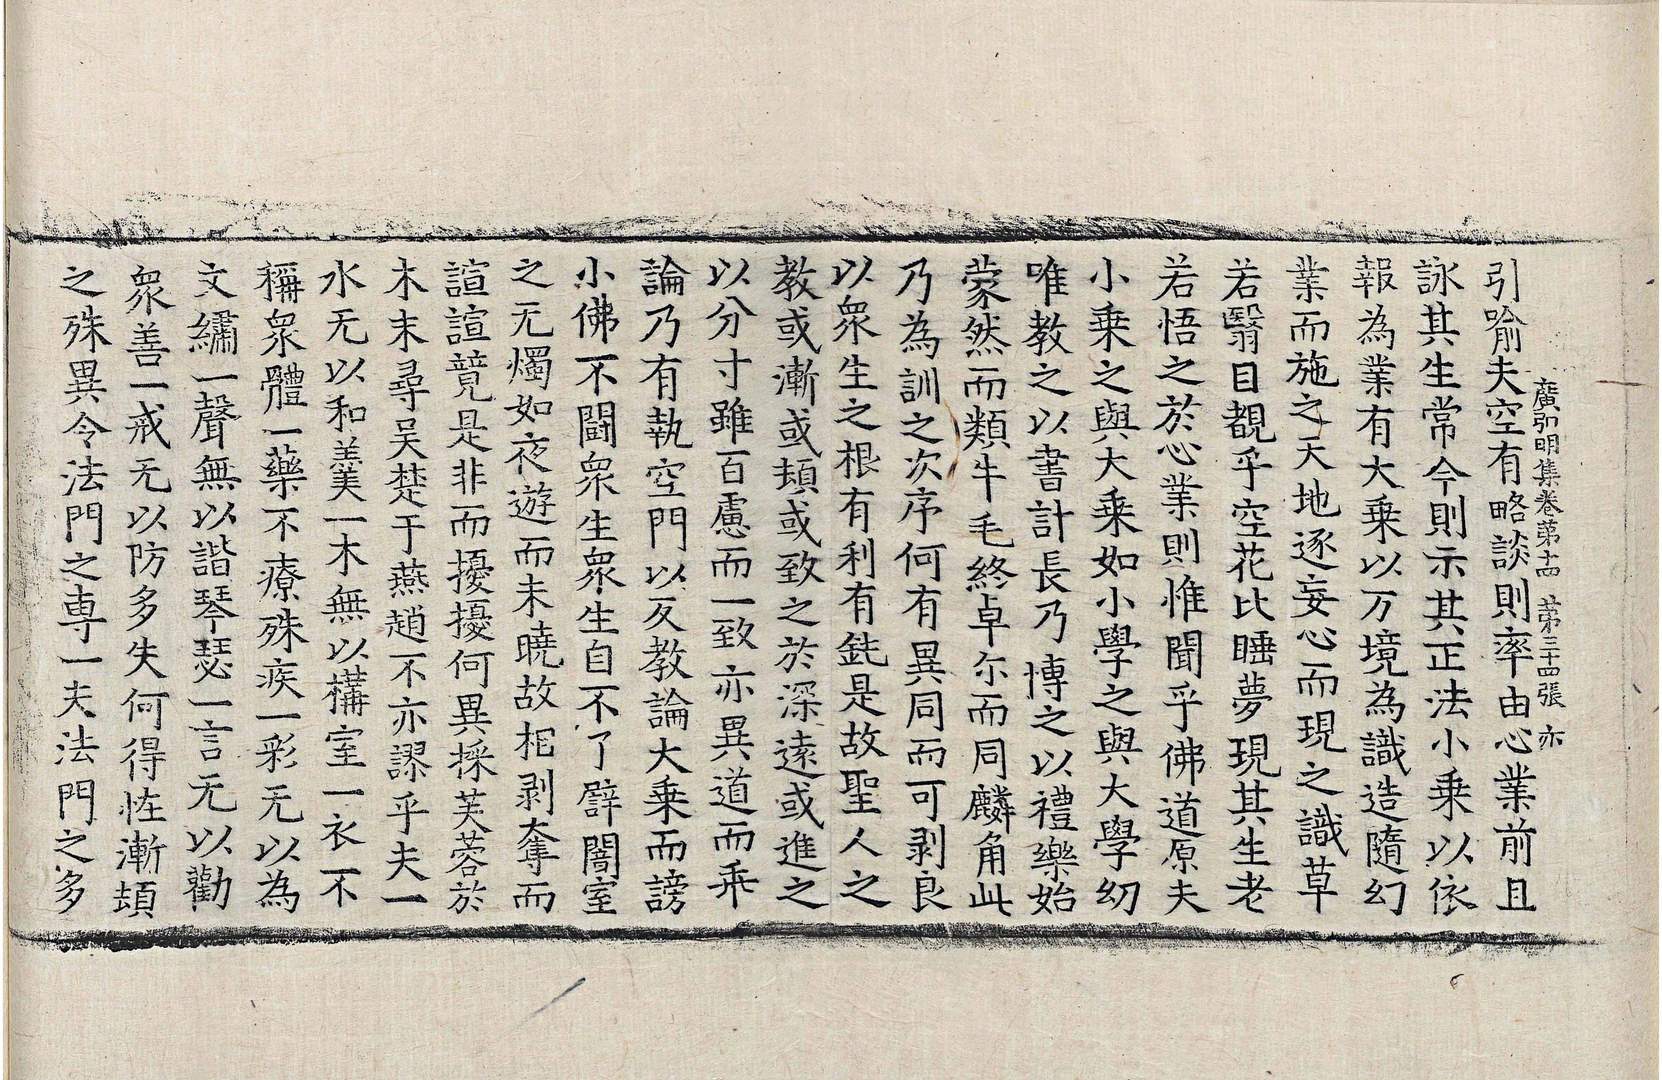 廣弘明集卷第十四　第三十四張　亦
引喻夫空有略談則率由心業前且
詠其生常今則示其正法小乘以依
報為業有大乘以万境為識造隨幻
業而施之天地逐妄心而現之識草
若翳目覩乎空花比睡夢現其生老
若悟之於心業則惟聞乎佛道原夫
小乘之與大乘如小學之與大學幼
唯教之以書計長乃博之以禮樂始
蒙然而類牛毛終卓尒而同麟角此
乃為訓之次序何有異同而可剥良
以衆生之根有利有鈍是故聖人之
教或漸或頓或致之於深遠或進之
以分寸雖百慮而一致亦異道而乖
論乃有執空門以反教論大乘而謗
小佛不鬪衆生衆生自不了譬闇室
之无燭如夜遊而未曉故相剥奪而
諠諠競是非而擾擾何異採芙蓉於
木末尋吴楚于燕趙不亦謬乎夫一
水无以和羹一木無以構室一衣不
稱衆體一藥不療殊疾一彩无以為
文繡一聲無以諧琴瑟一言无以勸
衆善一戒无以防多失何得恠漸頓
之殊異令法門之專一夫法門之多